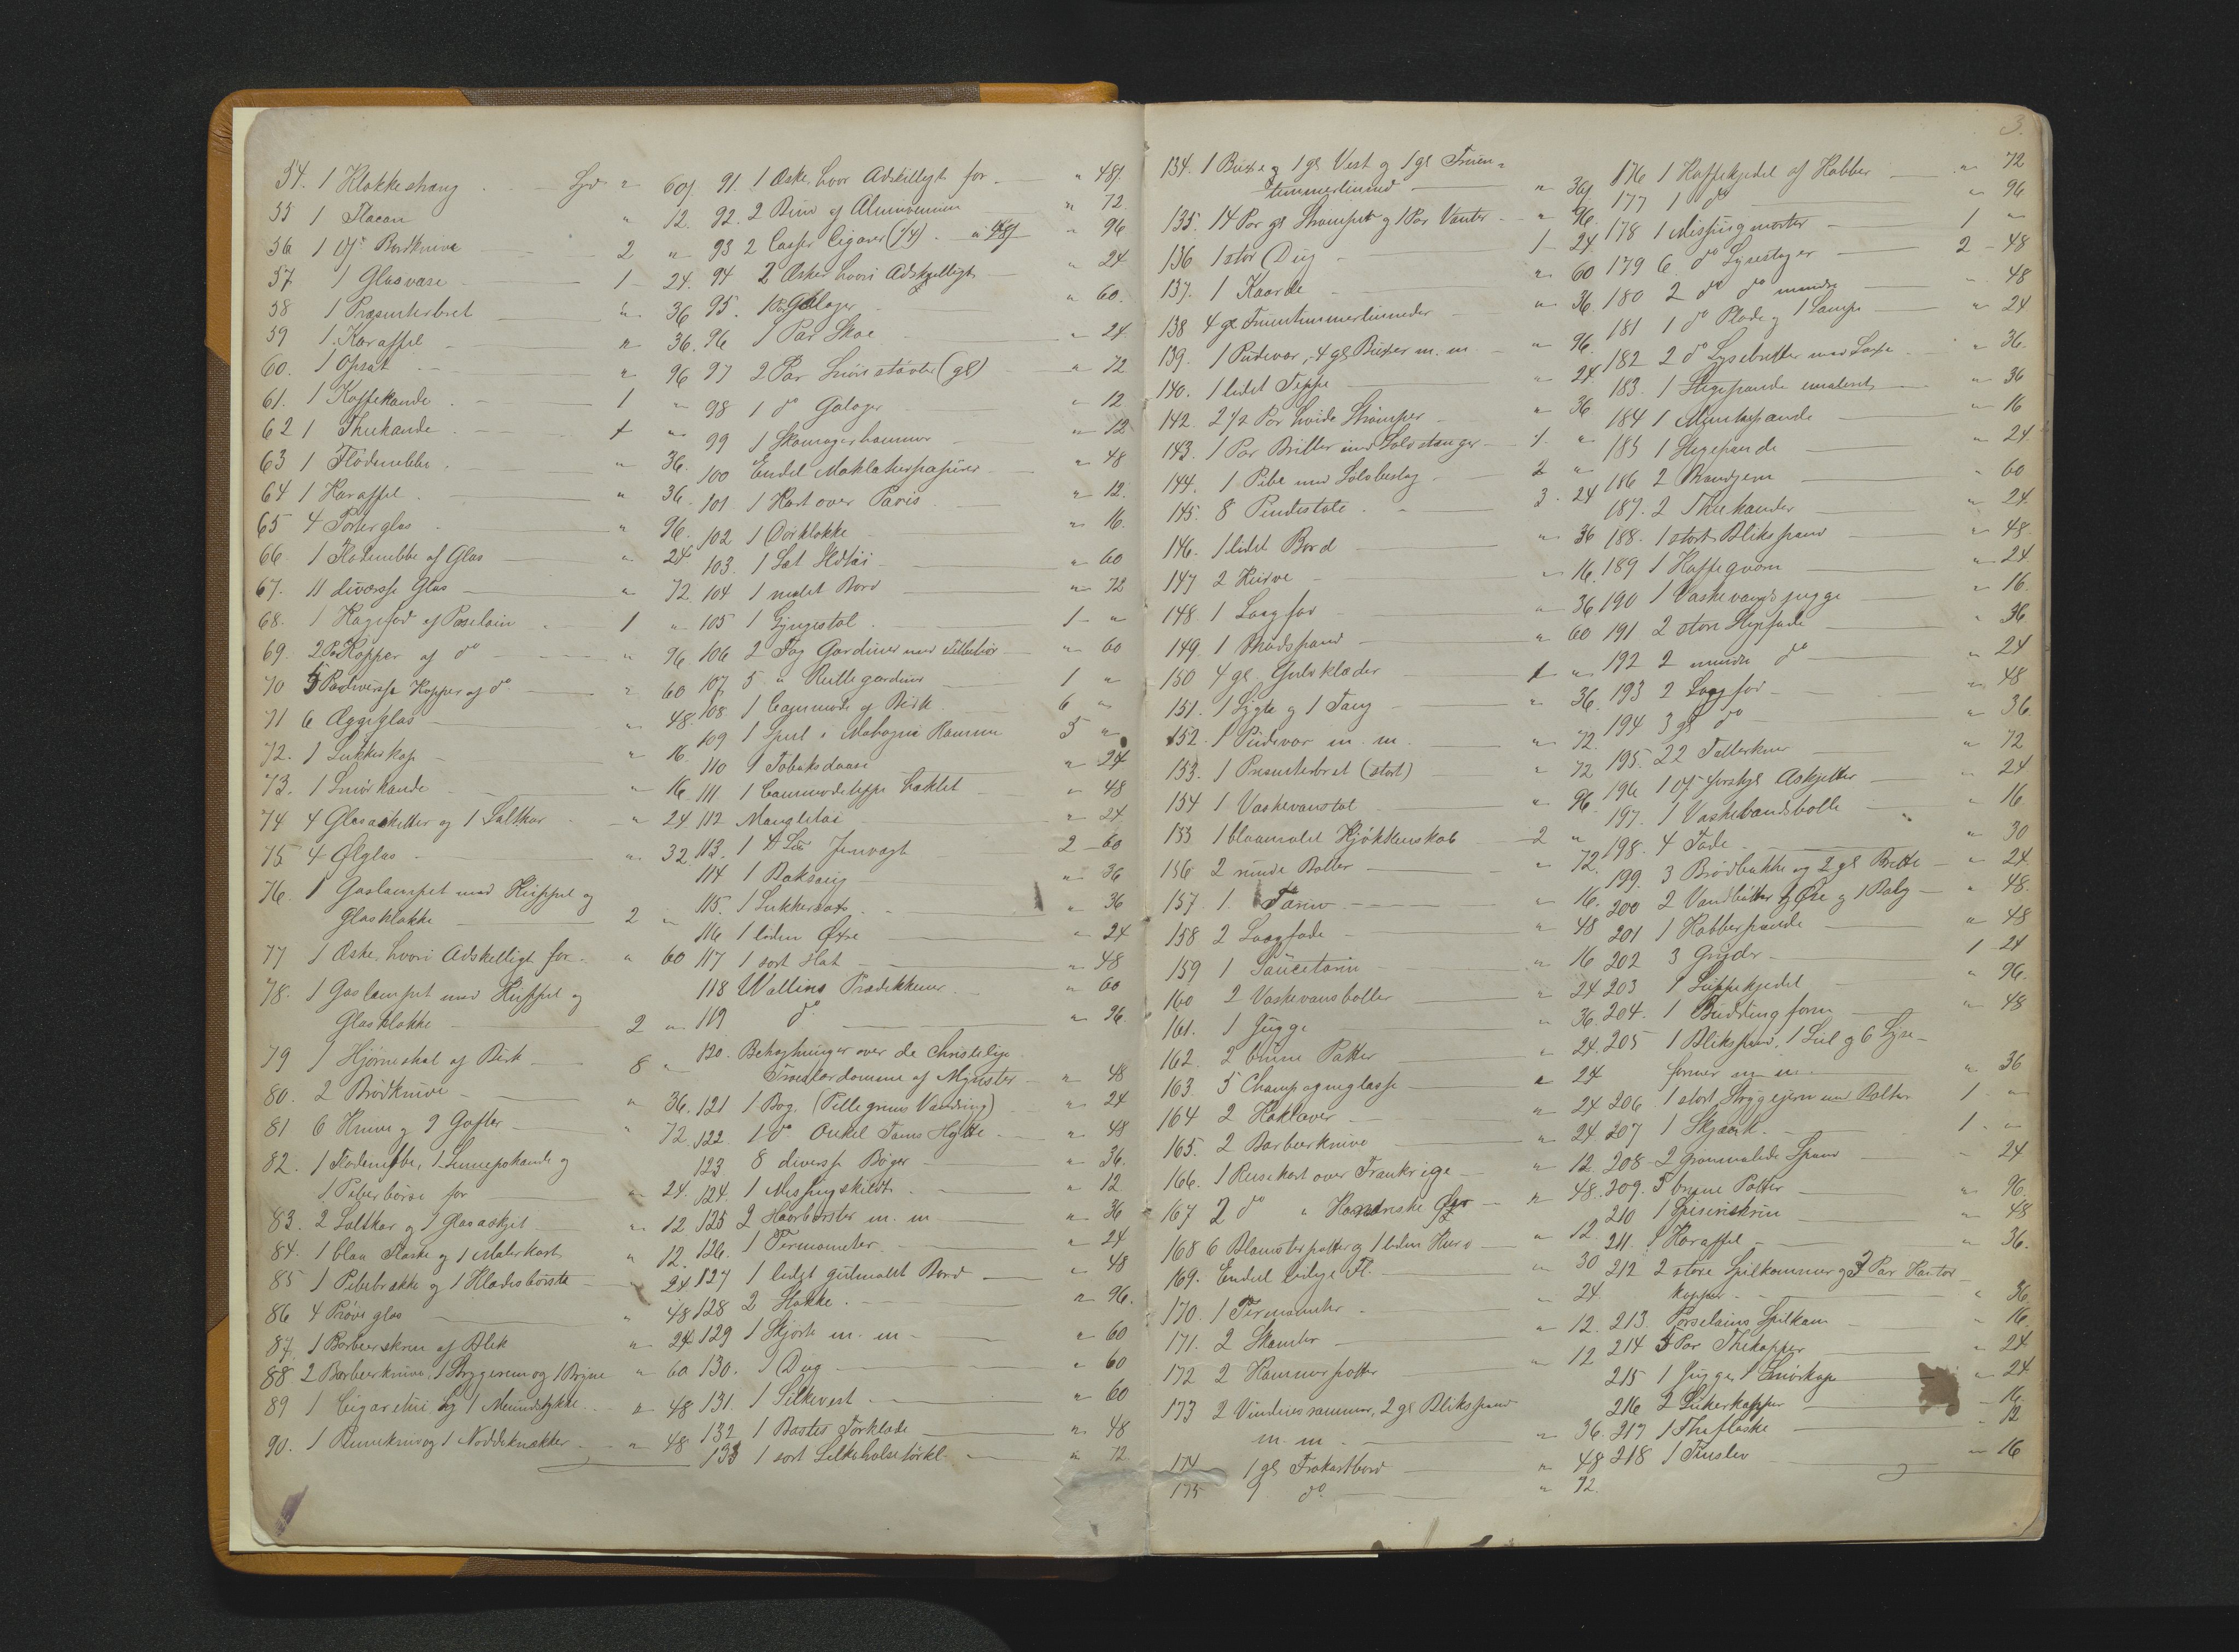 54. 1 Klokkestræng - Spd " 60 ß
55 1 Flacon " 12.
56 1 Ds. Bordknive 2 "
57 1 Glasvase 1 - 24.
58 1 Præsenterbret " 36
59 1 Karaffel " 36.
60. 1 Opsats " 96
61. 1 Kaffekande 1 "
62 1 Theekande 1 "
63 1 Flödemebbe " 36.
64 1 Karaffel " 36.
65 4 Porterglas " 96.
66. 1 Flödenebbe af Glas " 24
67. 11 diverse Glas " 72.
68. 1 Kagefad af Porselain 1 "
69. 2 Par Kopper af do " 96
70 5 Par diverse Kopper af do " 60
71 6 Æggeglas " 48.
72. 1 Sukkerkop " 16.
73. 1 Smörkande " 16.
74 4 Glasaskitter og 1 Saltkar " 24
75 4 Ölglas " 32
76. 1 Gaslampet med Kuppel og
Glasklokke 2 "
77 1 Æske, hvori Adskelligt for " 60
78. 1 Gaslampet med Kuppel og
Glasklokke 2 "
79 1 Hjörneskab af Birk 8 "
80. 2 Brödknive " 36.
81 6 Knive og 9 Gafler " 72.
82. 1 Flödenebbe, 1 Sennepskande og
1 Peberbörse for " 24.
83. 2 Saltkar og 1 Glasaskjet " 12
84. 1 blaa Flaske og 1 Malerkort " 12.
85 1 Pibebrække og 1 Klædesbörste " 24
86 4 Pröveglas " 48
87. 1 Barbeerskrin af Blik " 24
88 2 Barbeerknive, 1 Strygerem og 1 Bryne " 60
89 1 Cigaretui og 1 Mundstykke " 48
90. 1 Pennekniv og 1 Nöddeknækker " 48
91. 1 Æske, hvor Adskelligt for " 48 ß
92. 2 Brev af Aluminium " 72.
93 2 Casser Cigarer (1/4) " 96
94 2 Æsker hvori Adskjelligt " 24
95. 1 Par Galoger " 60.
96 1 Par Skoe " 24.
97 2 Par Snörestövler (gl) " 72
98 1 do Galoger " 12
99 1 Skomagerhammer " 12
100 Endel Maklaturpapirer " 48
101 1 Kart over Paris " 12.
102 1 Dörklokke " 16.
103. 1 Sæt Ildtöi " 60
104 1 malet Bord " 72
105 1 Gyngestol 1 - "
106 2 Fag Gardiner med Tilbehör " 60
107. 5 " Rullegardiner 1 "
108. 1 Commode af Birk 6 "
109 1 Speil i Mahogni Ramme 5 "
110 1 Tobaksdaase " 24
111 1 Commodeteppe hæklet " 48
112 Mangletöi " 24
113. 1 Jernvægt 2 - 60
114 1 Baksaug " 36
115. 1 Sukkersax " 36
116 1 liden Öxe " 24
117 1 sort Hat " 48
118 Wallins Prædikkener " 60
119 do " 96.
120. Betragtninger over de Christelige
Troeslærdomme af Mynster " 48
121 1 Bog. (Pillegrims Vandring) " 24
122. 1 do Onkel Toms Hytte " 48
123 8 diverse Böger " 36.
124. 1 Messingskildt " 12
125 2 Haarbörster m. m " 36
126. 1 Termometer " 24
127 1 lidet gulmalet Bord " 48
128 2 Stokke " 96.
129 1 Skjorte m. m " 60
130. 1 Dug " 60
131. 1 Silkevest " 60
132 1 Bastes Törklæde " 48
133 1 sort Silkehalstörkl. " 72
3.
134. 1 Buxe og 1 gl Vest og 1 gl Fruen=
timmerlinned " 36 ß
135. 14 Par gl Strömper og 1 Par Vanter " 96.
136 1 stor Dug 1 - 24.
137. 1 Kaarde " 60
138 4 gl Fruentimmerlinneder " 36
139. 1 Pudevar, 4 gl Buxer m. m " 96.
140. 1 lidet Teppe " 24.
142. 2 1/2 Par hvide Strömper " 36
143. 1 Par Briller med Sølvstænger 1. "
144. 1 Pibe med Sölvbeslag 2 "
145. 8 Pindestole 3. 24
146. 1 lidet Bord " 36
147 2 Kurve " 16.
148 1 Laagfad " 36
149. 1 Brödspand " 60
150 4 gl. Gulvklæder 1 "
151. 1 Lygte og 1 Tang " 36.
152. 1 Pudevar m. m. " 72.
153. 1 Presenterbret (stort) " 72
154 1 Vaskevansstol " 96.
155 1 blaamalet Kjökkenskab 2 "
156 2 runde Baller " 72.
157. 1 Tærin " 16.
158 2 Laagfade " 48
159 1 Saucetærin " 16
160 2 Vaskevansboller " 24
161. 1 Jugge " 36.
162. 2 brune Potter " 24.
163. 5 Champagneglasse " 24
164 2 Kaklaver " 24
165. 2 Barbeerknive " 24
166. 1 Reisekart over Frankrige " 12.
167 2 do " " 48.
168 6 Blomsterpotter og 1 liden Kurv " 12.
169. Endeel ledige Fl. " 30
170. 1 Termometer " 24
171. 2 Skamler " 12.
172 2 Kammerpotter " 12
173 2 Vinduesrammer, 2 gl Blikspand
m. m " 36.
174 1 gl Frokostbord " 48
175 1 do. " 72.
176 1 Kaffekjedel af Kobber " 72
177 1 do " 96
178 1 Messingmorter 1 "
179 6 do Lysestager 2 - 48
180 2 do do mindre " 48
181 1 do Plade og 1 Lampe " 24
182 2 do Lysebretter med Saxe " 36.
183. 1 Stegepande emaleret " 36
184 1 Munkepande " 16
185 1 Stegepande " 24
186 2 Brandjern " 60
187. 2 Theekander " 24.
188. 1 stort Blikspand " 48.
189 1 Kaffeqværn " 24.
190 1 Vaskevandsjugge " 16.
191 2 store Stegefade " 36
192 2 mindre do " 24
193 2 Laagfad " 48
194 3 gl do " 36.
195. 22 Tallerkner " 72
196 1 Ds forskjl Askjetter " 24
197. 1 Vaskevandsbolle " 16
198. 4 Fade " 30
199. 3 Brödbakke og 2 gl Brette " 24.
200 2 Vandbötter, 1 Öse og 1 Balg " 48.
201 1 Kobberpande " 48
202 3 Gryder 1 24
203 1 Suppekjedel " 96.
204. 1 Budding form " 48
205 1 Blikspand, 1 Siil og 6 Lyse-
former m. m " 36
206. 1 stort Strygejern med Bolter 1 "
207 1 Skjærk. 1 - "
208 2 grönmalede Spand " 24
209. 5 brune Potter " 96
210 1 Spiseriskrin " 48
211. 1 Karaffel " 36.
212 2 store Spilkommer og 3 Par Kantor
kopper " 36
213. Porselains Spilkom " 16.
214 5 Par Thekopper " 24
215 1 Jugge, 1 Smörkop " 24
216 2 Sukerkopper " 16
217 1 Theflaske " 12
218 1 Tinslev " 16